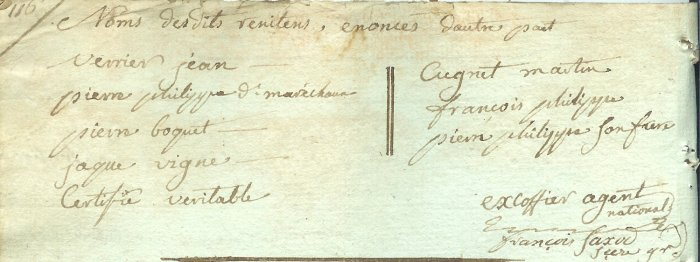 116
Noms desdits renitens, enoncés d'autre part
verrier jean
pierre philippe dt maréchaux
pierre boquet
jaque vigne
Certifié veritable
Cugnet martin
françois philippe
pierre philippe son frere
excoffier agent
national
françois